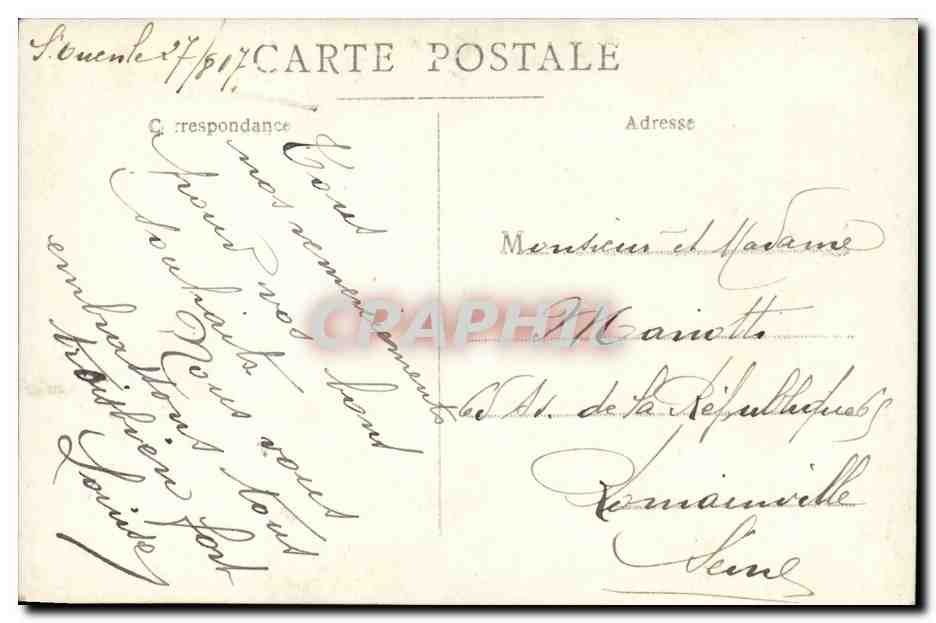 St Ouen le 27/8 17
CARTE POSTALE
Correspondance
Tous
nos remerciements
pour vos bons
souhaits Nous vous
embrassons tous
tous bien fort
Louise
Adresse
Monsieur et Madame
Mariotti
65 Av. de la République 65
Romainville
Seine
CPAPHIL